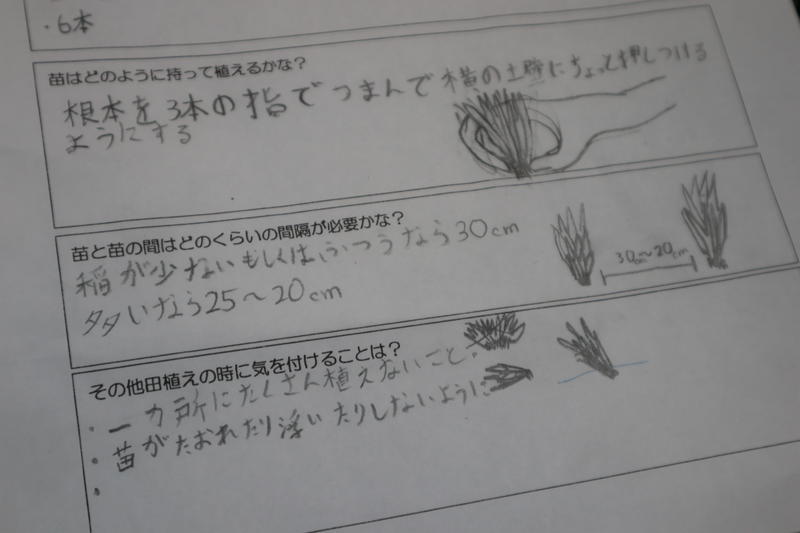 ・6本
苗はどのように持って植えるかな？
根本を3本の指でつまんで横の土壁にちょっと押しつける
ようにする
苗と苗の間はどのくらいの間隔が必要かな？
稲が少ないもしくはふつうなら30cm
多いなら25～20cm
30cm～20cm
その他田植えの時に気を付けることは？
・一カ所にたくさん植えないこと。
・苗がたおれたり浮いたりしないように
・